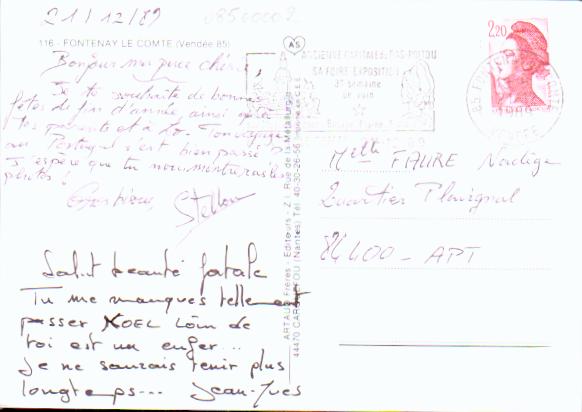 21/12/89
08500002
116 - FONTENAY LE COMTE (Vendée 85)
Bonjour ma puce chérie,
Je te souhaite de bonnes
fêtes de fin d'année, ainsi qu'à
tes parents et à Lo. Ton voyage
au Portugal s'est bien passé ?
J'espère que tu nous montreras les
photos !
Gros bisous,
Salut beauté fatale
Tu me manques tellement
passer NOEL loin de
toi est un enfer...
je ne saurais tenir plus
longtemps... Jean-Yves
ARTAUD Frères - Editeurs - Z.I. Rue de la Métallurgie
44470 CARQUEFOU (Nantes) Tél. 40-30-26-56
AS
ANCIENNE CAPITALE DU BAS-POITOU
SA FOIRE EXPOSITION
3e semaine
de juin
2,20
Melle FAURE Nadège
Quartier
84400 - APT